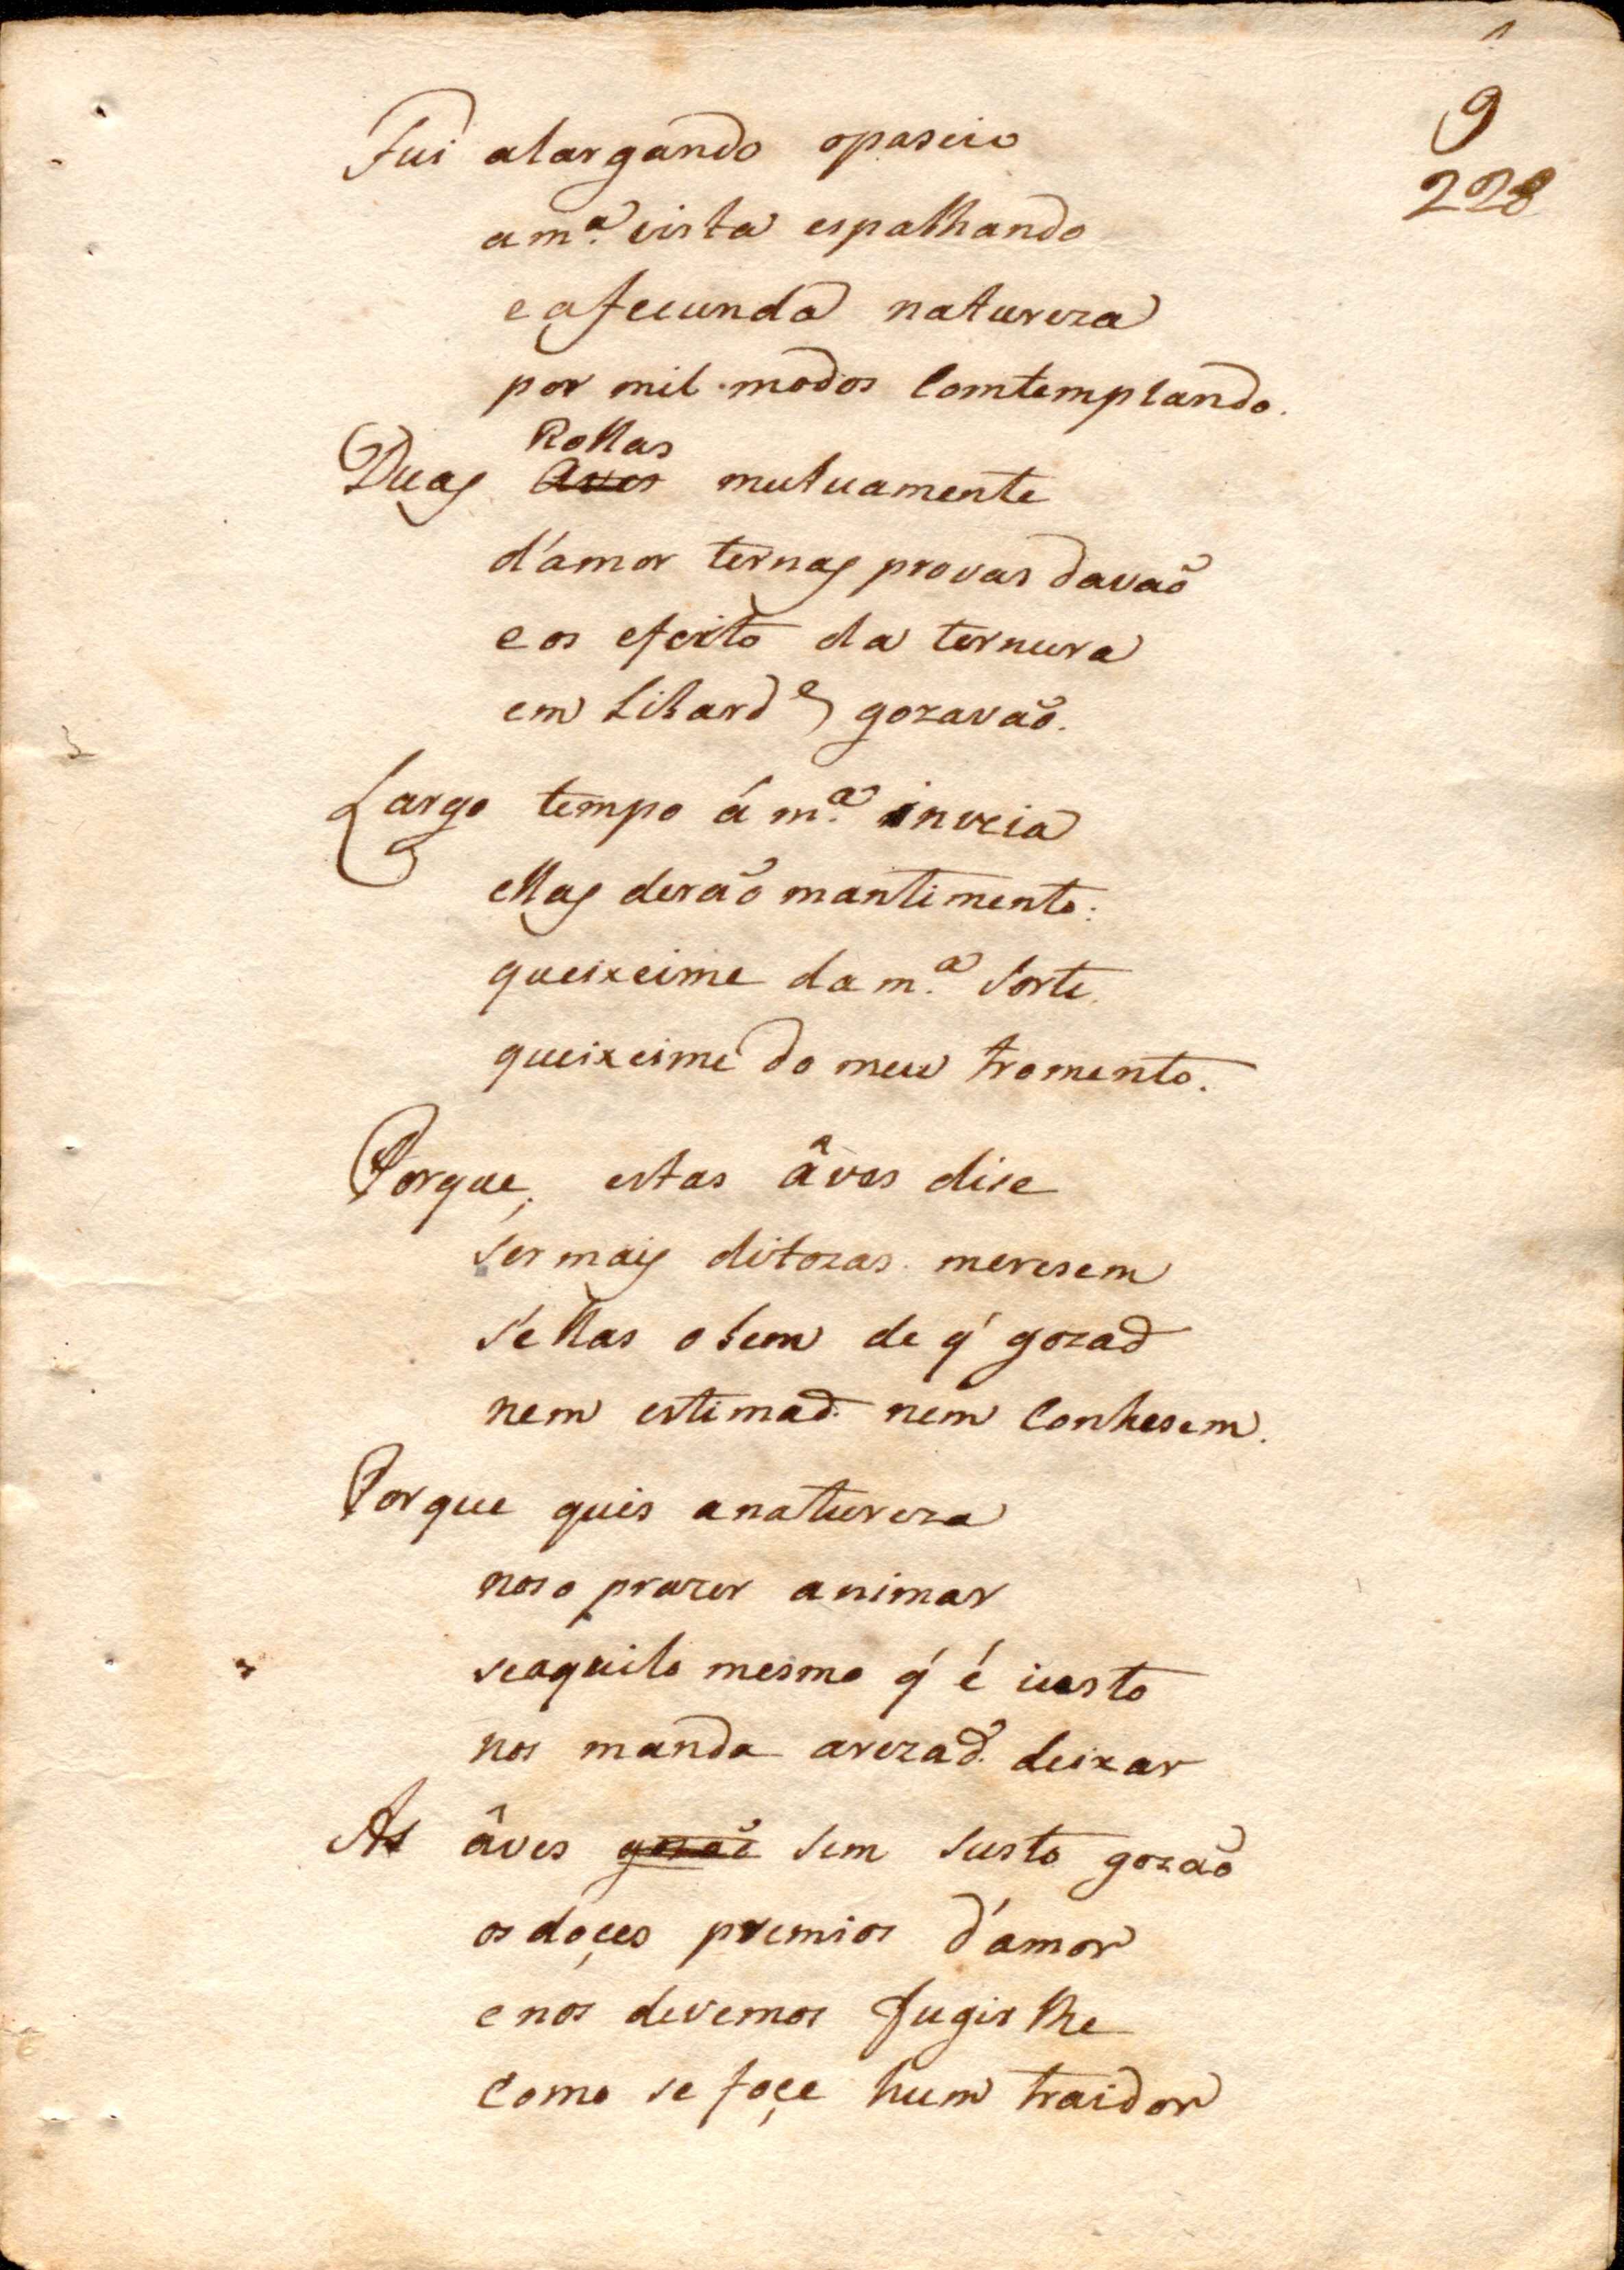 9
228
Fui alargando opaseio
a mª vista espalhando
e afecunda natureza
por mil modos Comtemplando.
Rollas
Duas Aves mutuamente
d'amor ternas provas davaõ
e os efeito da ternura
em Libard e gozavaõ.
Largo tempo á mª inveia
ellas deraõ mantimento:
queixeime da mª Sorte.
queixeime do meu tromento.
Porque, estas âves dise
ser mais ditozas meresem
s'ellas o bem de q' gozaõ
nem estimaõ nem Conhesem.
Porque quis a natureza
noso prazer animar
seaquilo mesmo q' é iusto
nos manda arezaõ deixar
As âves gozaõ sem susto gozaõ
os doçes premios d'amor
e nos devemos fugirlhe
Como se foçe hum traidor